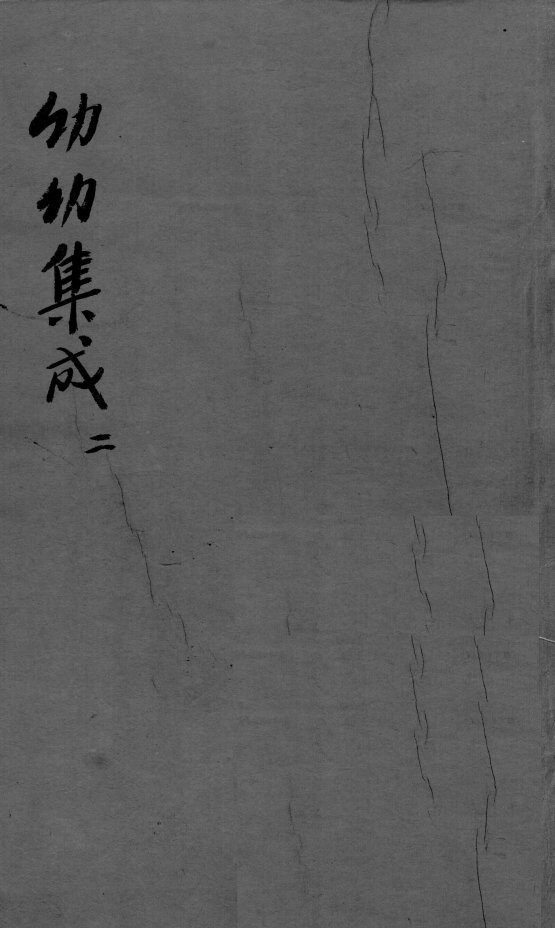 幼幼集成 二